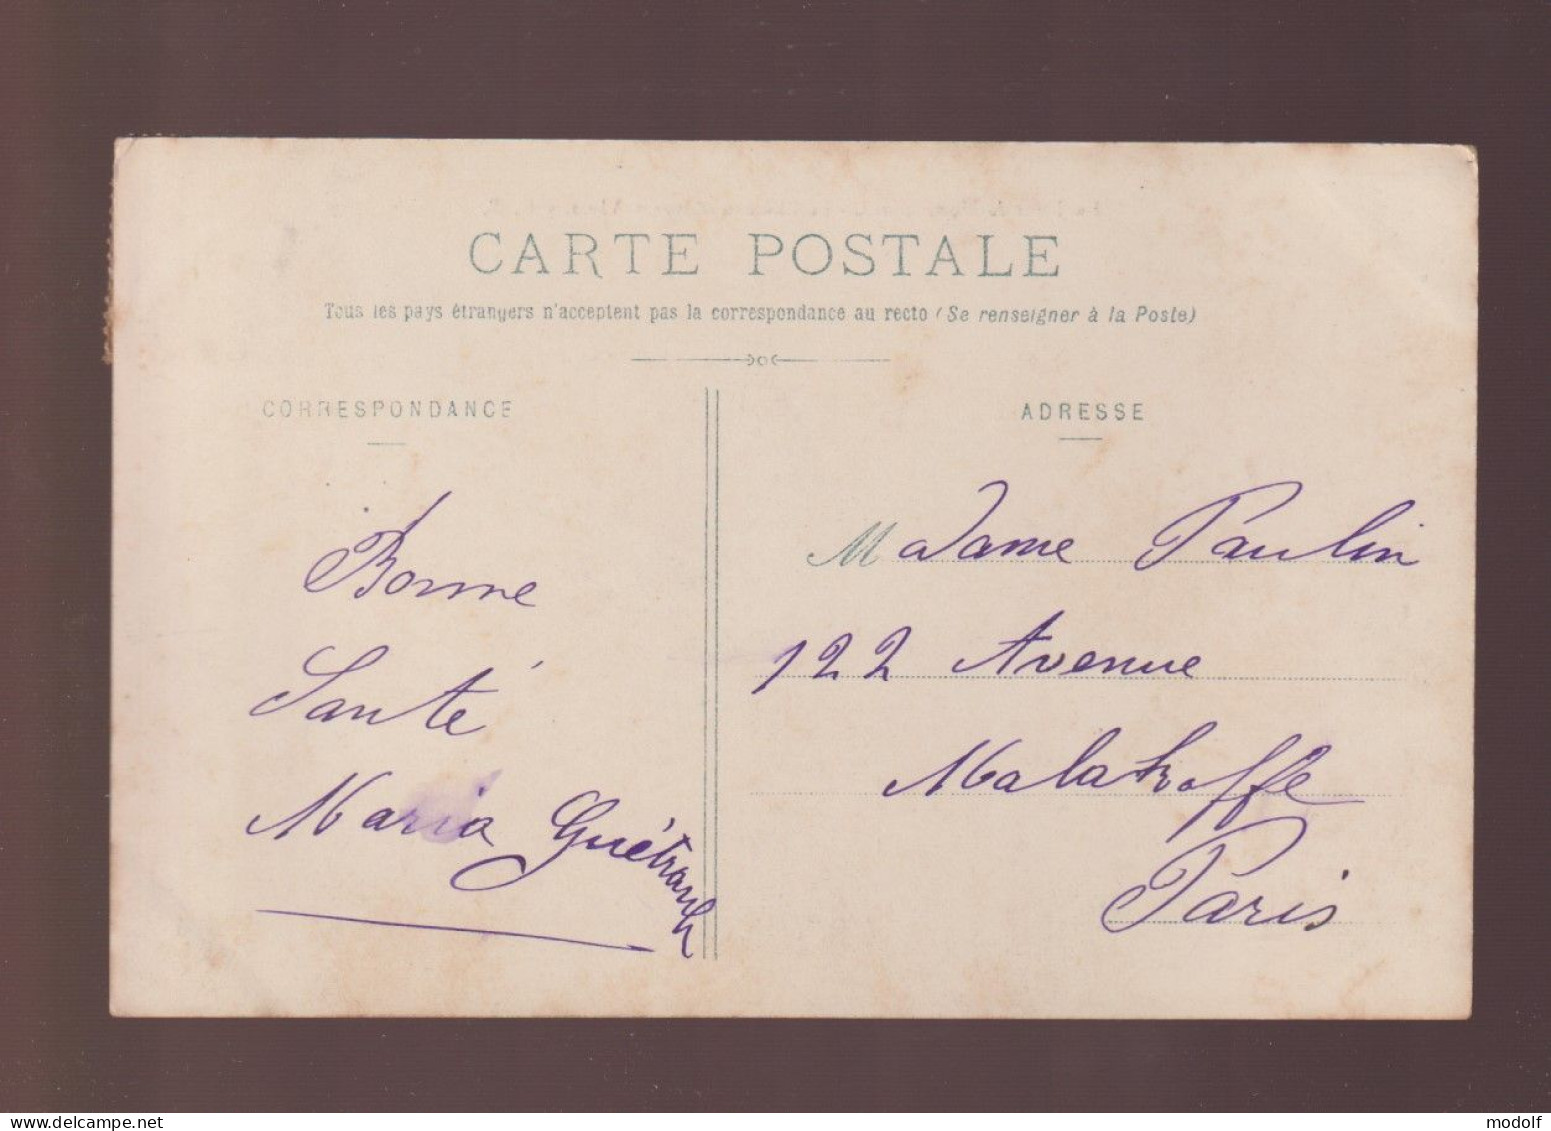 CARTE POSTALE
Tous les pays étrangers n'acceptent pas la correspondance au recto (Se renseigner à la Poste)
CORRESPONDANCE
Bonne
Santé
Maria
ADRESSE
Madame Paulin
122 Avenue
Malakoffe
Paris
www.delcampe.net
modolf